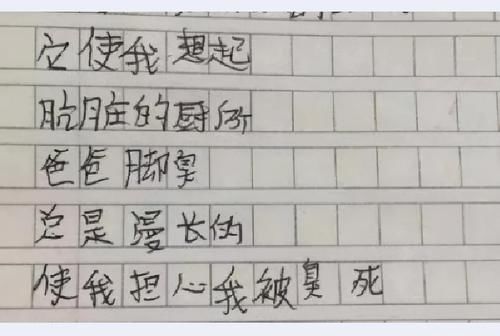 它使我想起
肮脏的厨所
爸爸脚臭
总是漫长的
使我担心我被臭死